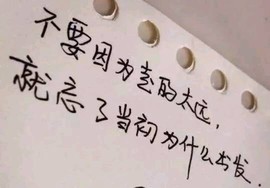 不要因为走的太远，
就忘了当初为什么出发.